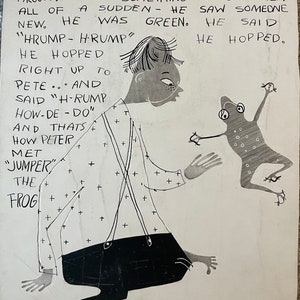 ALL OF A SUDDEN - HE SAW SOMEONE
NEW. HE WAS GREEN. HE SAID
"HRUMP - HRUMP" HE HOPPED.
HE HOPPED
RIGHT UP TO
PETE .. AND
SAID "H-RUMP
HOW-DE-DO"
AND THATS
HOW PETER
MET
"JUMPER"
THE
FROG